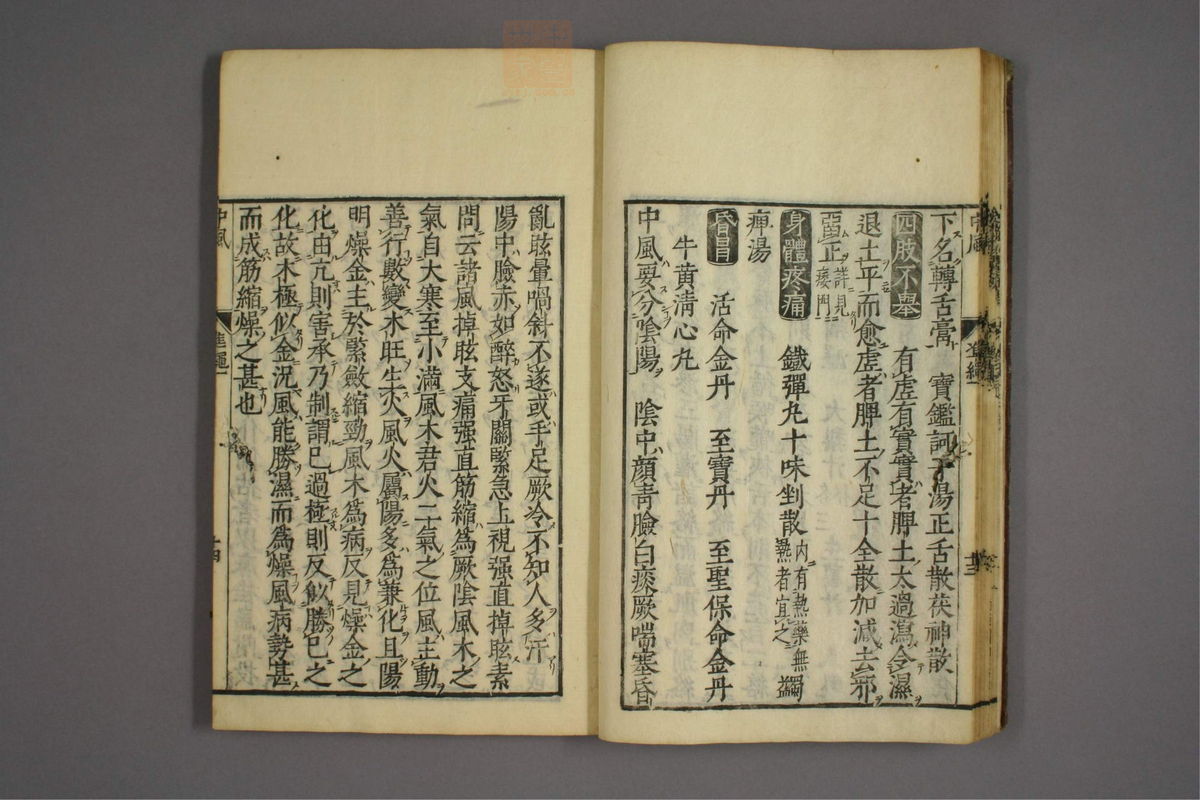 下名轉舌膏 寶鑑訶子湯正舌散茯神散
四肢不舉 有虛有實實者脾土太過瀉令濕
退土平而愈虛者脾土不足十全散加減去邪
畱正詳見痿門
身體疼痛 鐵彈丸十味剉散內有熱藥無獨熱者宜之蠲
痺湯
昏冒 活命金丹 至寶丹 至聖保命金丹
牛黃淸心丸
中風要分陰陽 陰中顏靑臉白痰厥喘塞昏
亂眩暈喎斜不遂或手足厥冷不知人多汗
陽中臉赤如醉怒牙關緊急上視强直掉眩素
問云諸風掉眩支痛强直筋縮爲厥陰風木之
氣自大寒至小滿風木君火二氣之位風主動
善行數變木旺生火風火屬陽多爲兼化且陽
明燥金主於緊斂縮勁風木爲病反見燥金之
化由亢則害承乃制謂已過極則反似勝已之
化故木極似金況風能勝濕而爲燥風病勢甚
而成筋縮燥之甚也
中風
十四